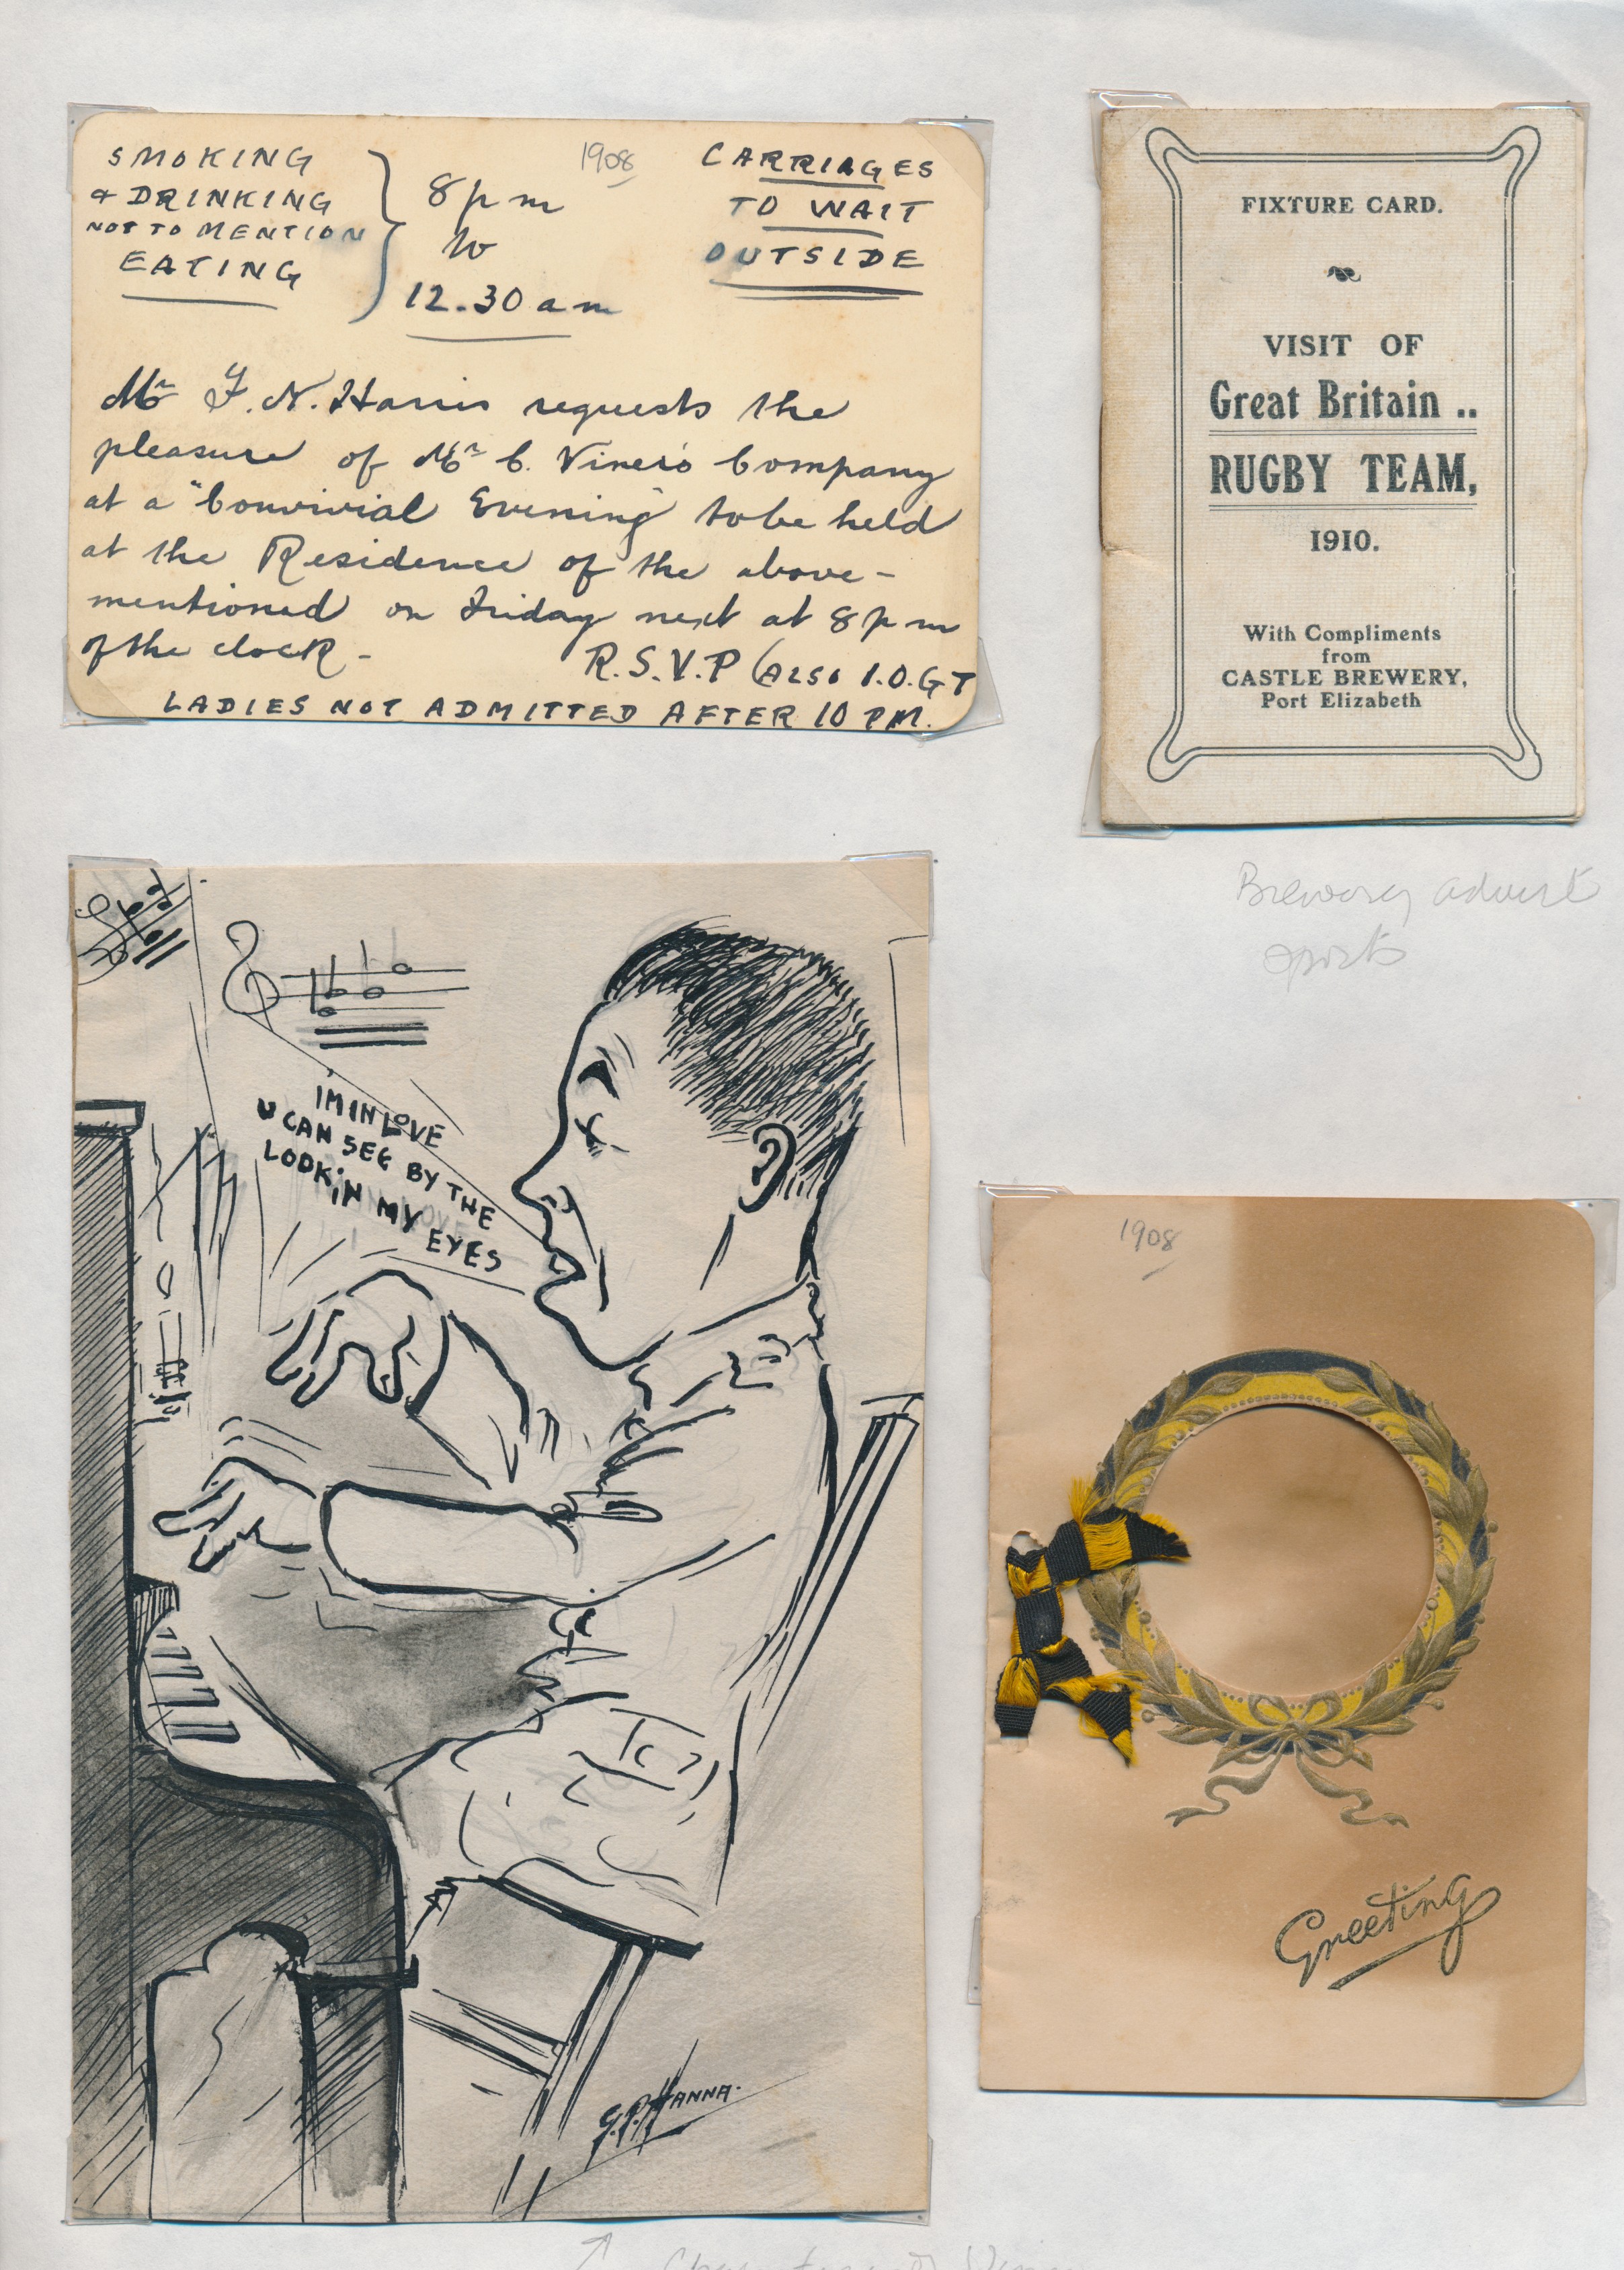 SMOKING
& DRINKING
NOT TO MENTION
EATING
8 pm
to
12.30 am
1908
CARRIAGES
TO WAIT
OUTSIDE
Mr F. N. Harris requests the
pleasure of Mr C. Viner's Company
at a "Convivial Evening" to be held
at the Residence of the above-
mentioned on Friday next at 8 pm
of the clock -
R.S.V.P (ALSO I.O.G T
LADIES NOT ADMITTED AFTER 10 PM.
FIXTURE CARD.
VISIT OF
Great Britain ..
RUGBY TEAM,
1910.
With Compliments
from
CASTLE BREWERY,
Port Elizabeth
Brewery advert
sports
I'M IN LOVE
U CAN SEE BY THE
LOOK IN MY EYES
G.P. HANNA.
1908
Greeting